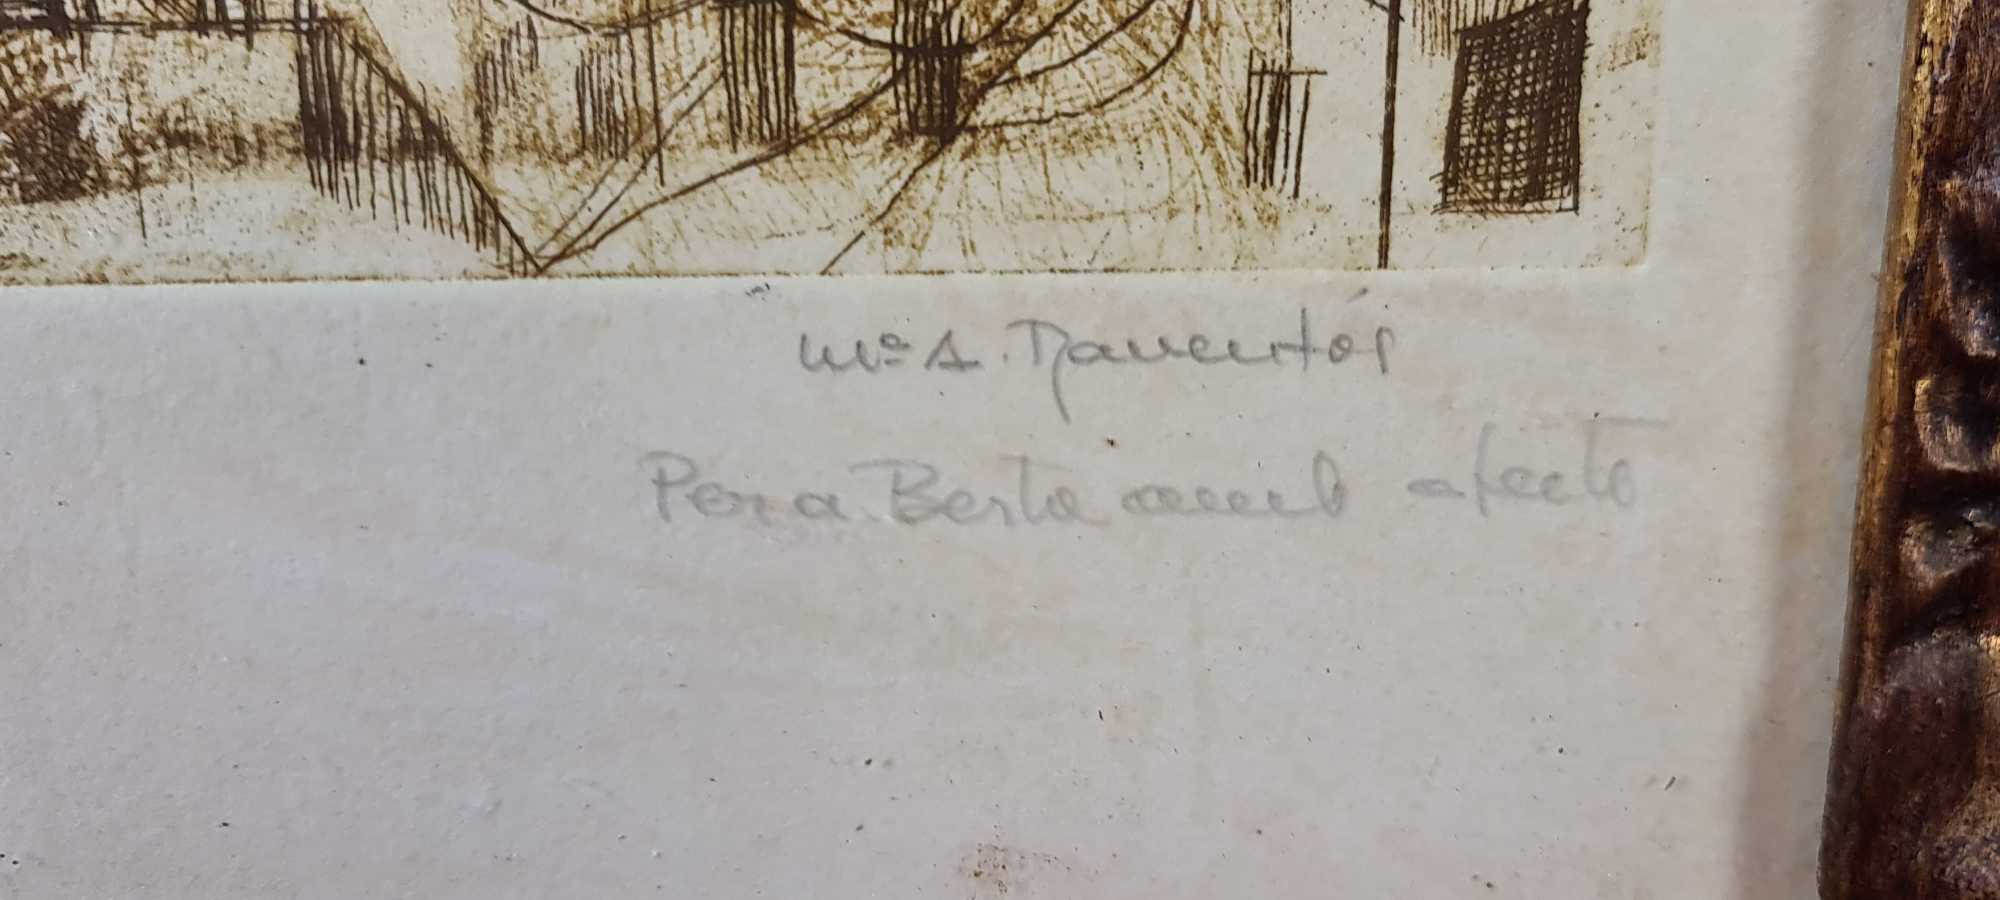 Mª A. Raventós
Per a Berta amb afecte